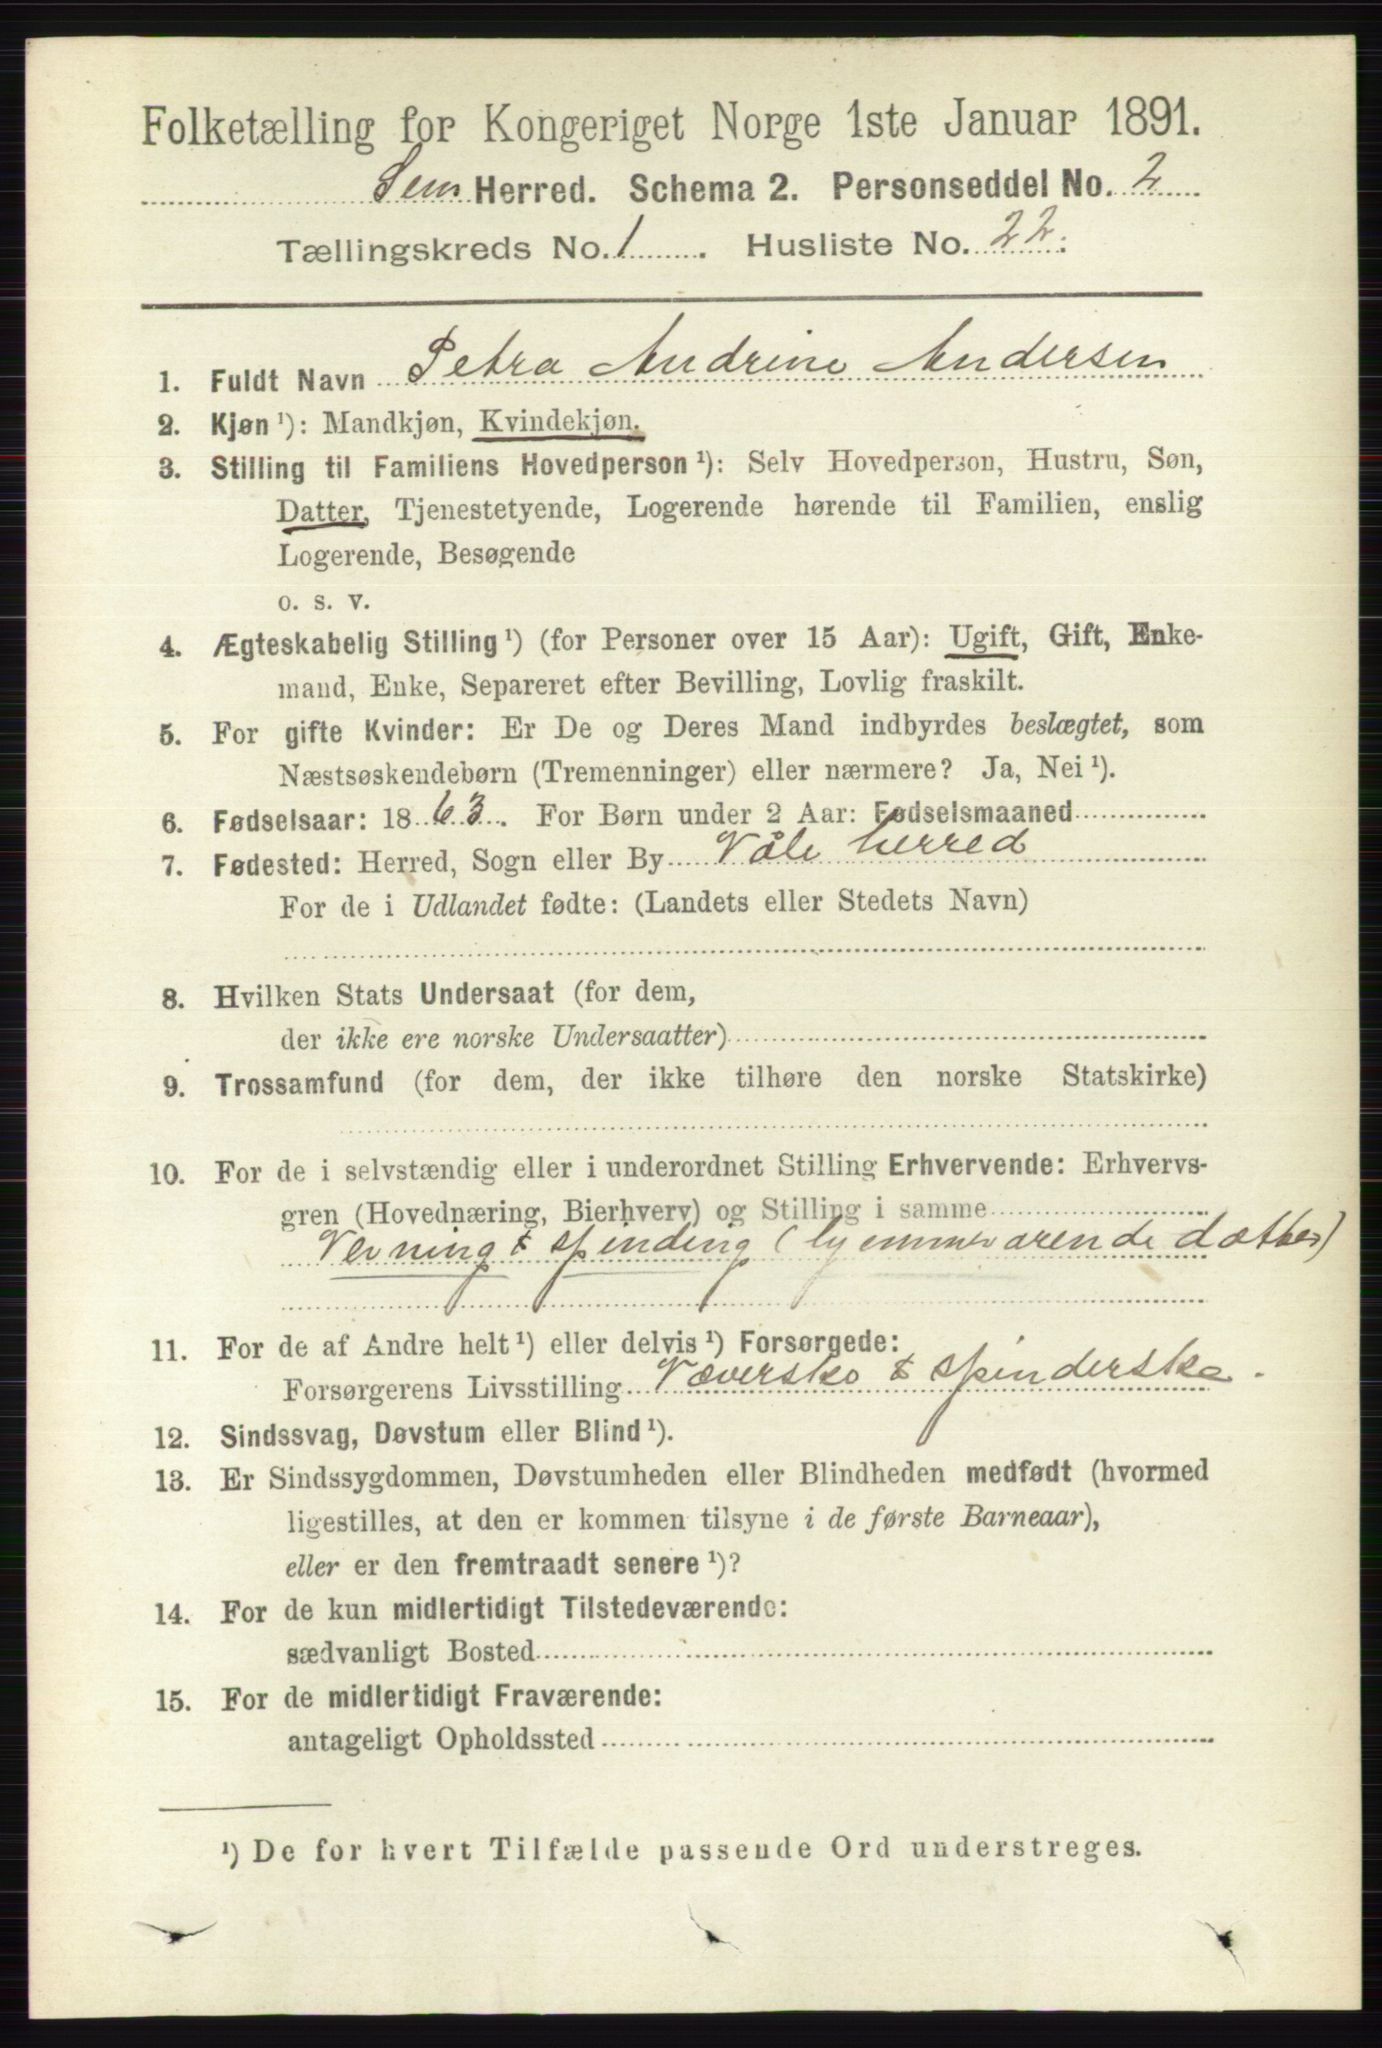 Folketælling for Kongeriget Norge 1ste Januar 1891.
Sem Herred. Schema 2. Personseddel No. 2
Tællingskreds No. 1. Husliste No. 22.
1. Fuldt Navn Petra Andrine Andersen
2. Kjøn ¹): Mandkjøn, Kvindekjøn.
3. Stilling til Familiens Hovedperson ¹): Selv Hovedperson, Hustru, Søn,
Datter, Tjenestetyende, Logerende hørende til Familien, enslig
Logerende, Besøgende
o. s. v.
4. Ægteskabelig Stilling ¹) (for Personer over 15 Aar): Ugift, Gift, Enke-
mand, Enke, Separeret efter Bevilling, Lovlig fraskilt.
5. For gifte Kvinder: Er De og Deres Mand indbyrdes beslægtet, som
Næstsøskendebørn (Tremenninger) eller nærmere? Ja, Nei ¹).
6. Fødselsaar: 1863. For Børn under 2 Aar: Fødselsmaaned
7. Fødested: Herred, Sogn eller By Våle herred
For de i Udlandet fødte: (Landets eller Stedets Navn)
8. Hvilken Stats Undersaat (for dem,
der ikke ere norske Undersaatter)
9. Trossamfund (for dem, der ikke tilhøre den norske Statskirke)
10. For de i selvstændig eller i underordnet Stilling Erhvervende: Erhvervs-
gren (Hovednæring, Bierhverv) og Stilling i samme
Vevning & spinding (hjemmevarende datter)
11. For de af Andre helt ¹) eller delvis ¹) Forsørgede:
Forsørgerens Livsstilling Væverske & spinderske.
12. Sindssvag, Døvstum eller Blind ¹).
13. Er Sindssygdommen, Døvstumheden eller Blindheden medfødt (hvormed
ligestilles, at den er kommen tilsyne i de første Barneaar),
eller er den fremtraadt senere ¹)?
14. For de kun midlertidigt Tilstedeværende:
sædvanligt Bosted
15. For de midlertidigt Fraværende:
antageligt Opholdssted
¹) De for hvert Tilfælde passende Ord understreges.